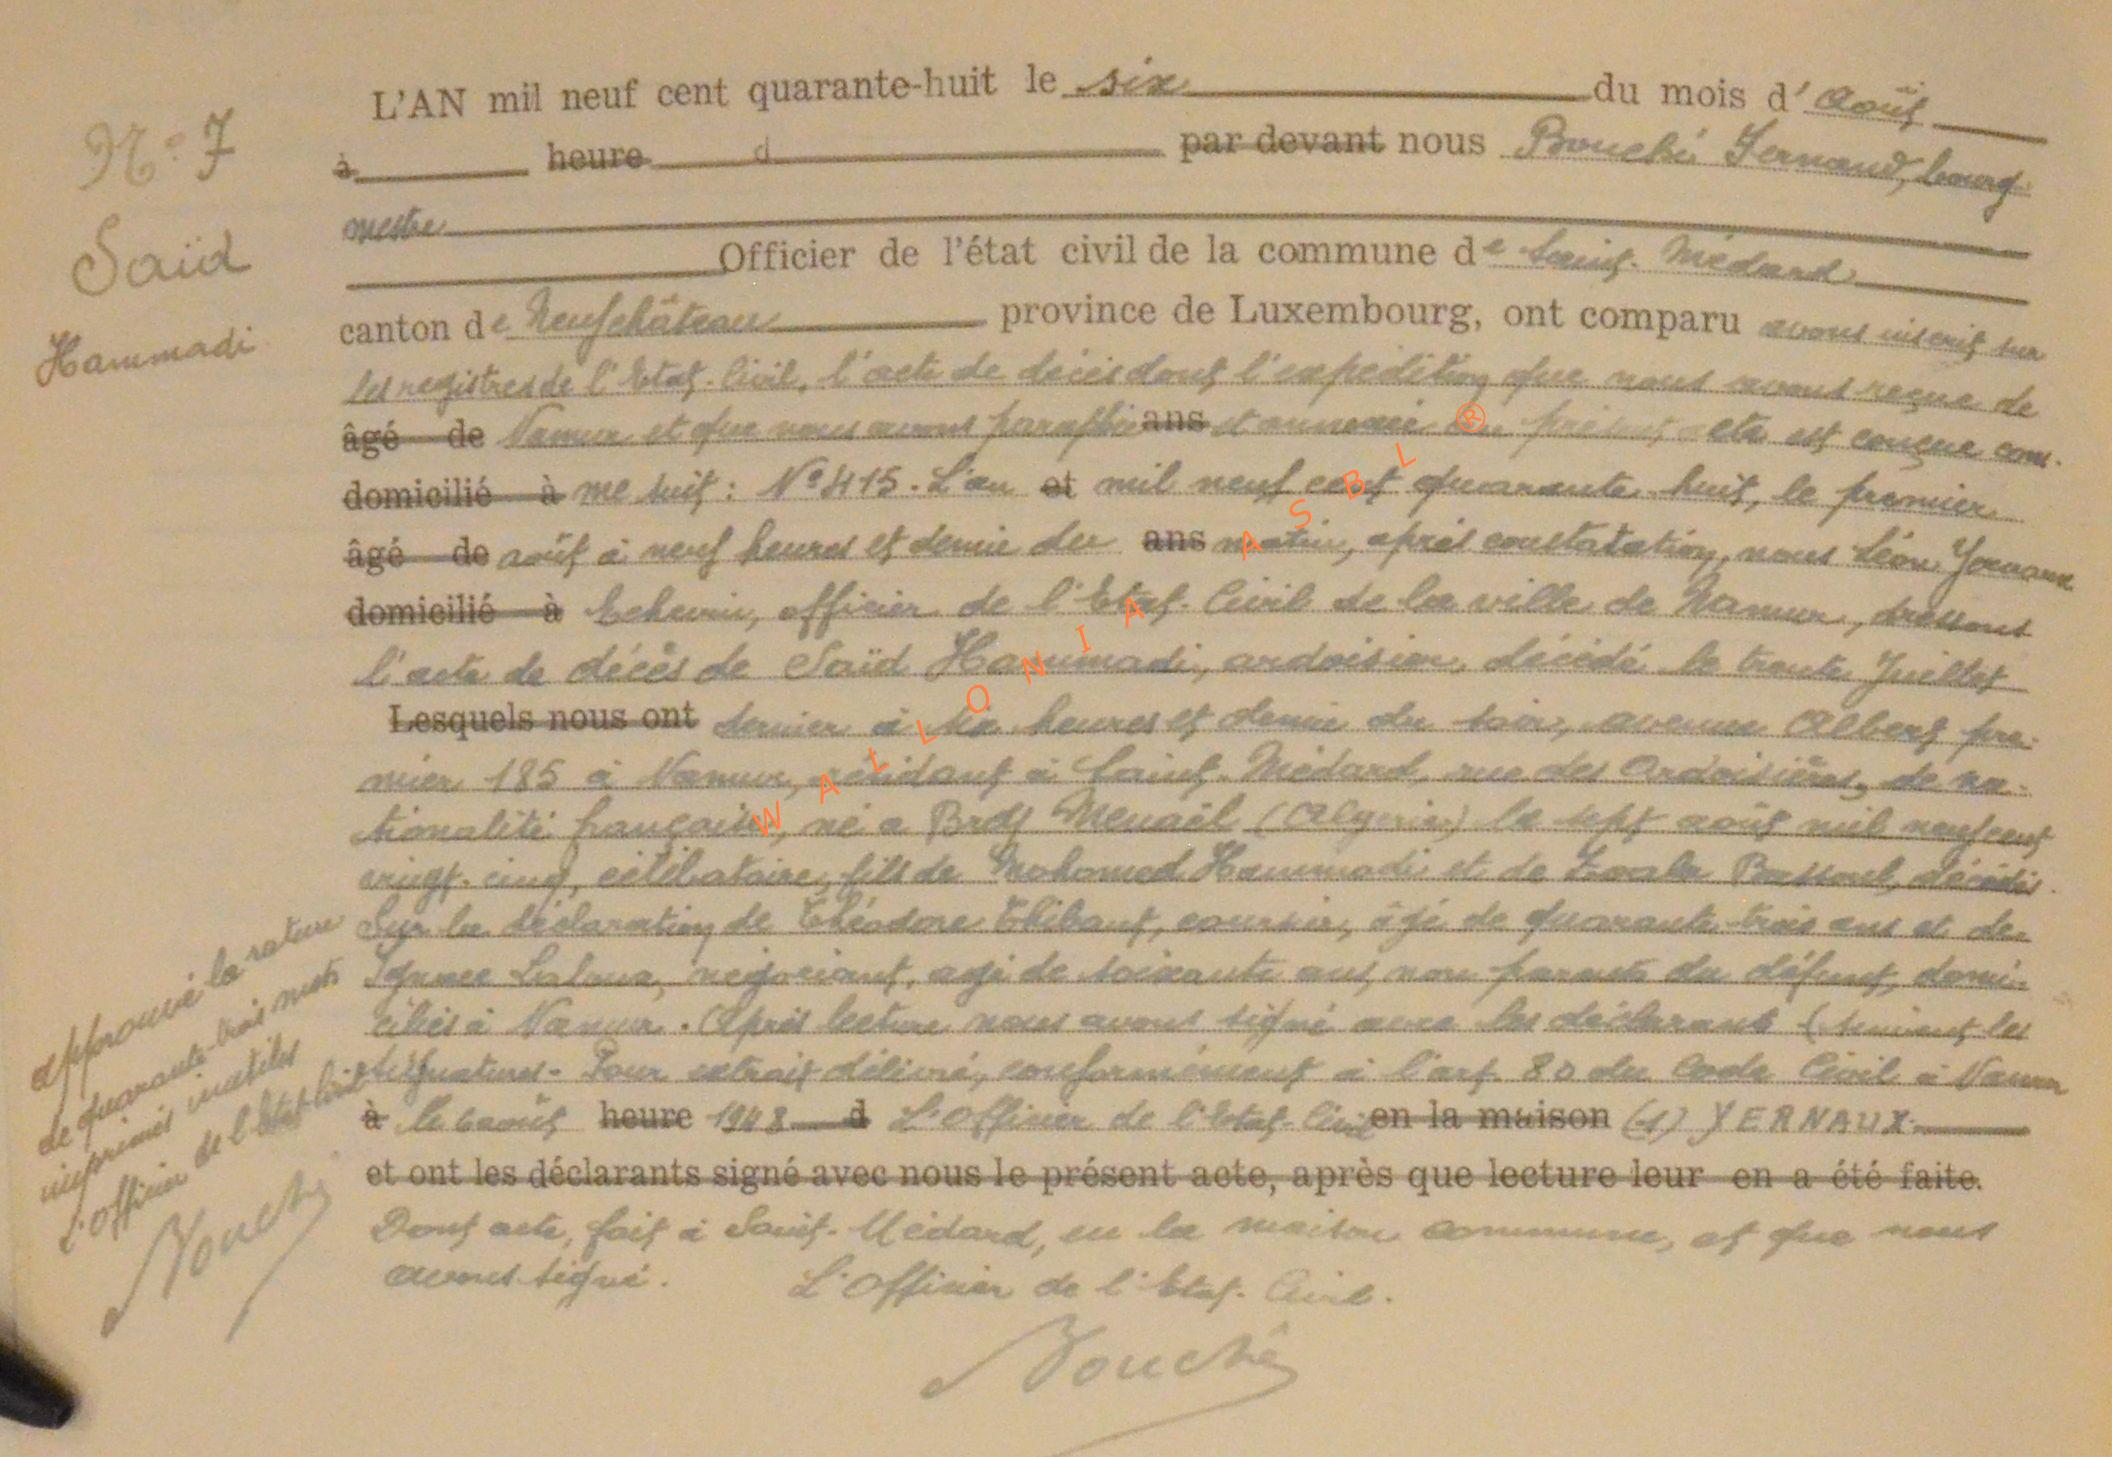 L'AN mil neuf cent quarante-huit le six du mois d' Août
N° 7
à heure d par devant nous Bouché Fernand, bourg-
mestre
Saïd
Officier de l'état civil de la commune de Saint-Médard
Hammadi
canton de Neufchâteau province de Luxembourg, ont comparu avons inscrit sur
les registres de l'Etat-Civil, l'acte de décès dont l'expédition que nous avons reçue de
âgé de Namur et que nous avons paraphée ans et annexée au présent acte est conçue com-
domicilié à me suit : N° 415. L'an et mil neuf cent quarante-huit, le premier
âgé de août à neuf heures et demie du ans matin, après constatation, nous Léon Yernaux
domicilié à Echevin, officier de l'Etat-Civil de la ville de Namur, dressons
l'acte de décès de Saïd Hammadi, ardoisier, décédé le trente Juillet
Lesquels nous ont dernier à six heures et demie du soir, avenue Albert pre-
mier 185 à Namur, résidant à Saint-Médard, rue des Ardoisières, de na-
tionalité française, né a Brdj Menaïl (Algérie) le sept août mil neuf cent
vingt-cinq, célibataire, fils de Mohamed Hammadi et de décédés.
Sur la déclaration de Théodore Thibaut, coursier, âgé de quarante-trois ans et de
Ignace négociant, agé de soixante ans, non parents du défunt, domi-
ciliés à Namur. Après lecture nous avons signé avec les déclarants (suivent les
signatures - Pour extrait délivré, conformément à l'art. 80 du Code Civil à Namur
à le 6 août heure 1948 d L'Officier de l'Etat-Civil en la maison (s) YERNAUX.
et ont les déclarants signé avec nous le présent acte, après que lecture leur en a été faite.
Dont acte, fait à Saint-Médard, en la maison commune, et que nous
avons signé. L'Officier de l'Etat-Civil.
Bouché
approuvé la rature
de quarante-trois mots
imprimés inutiles
L'Officier de l'Etat-Civil
Bouché
WALLONIA ASBL ®